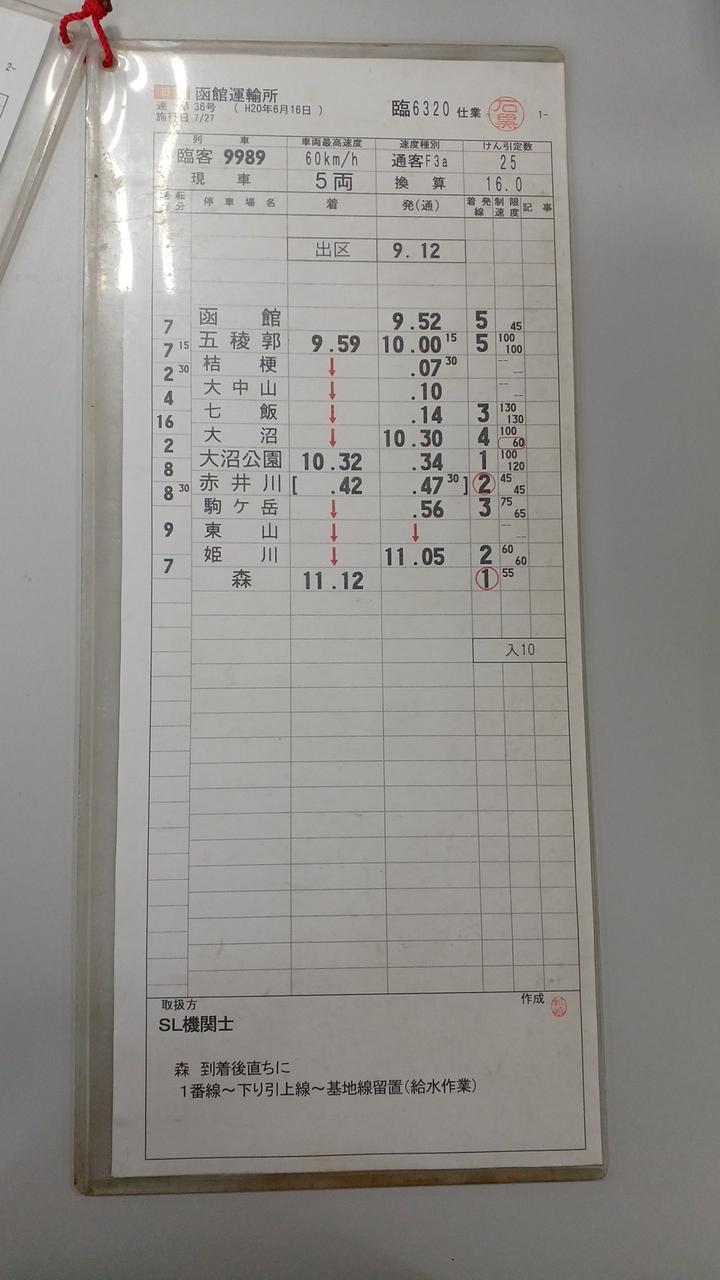 2-
函館運輸所
36号 ( H20年6月16日 )
施行日 7/27
臨6320 仕業 石黒 1-
列車 車両最高速度 速度種別 けん引定数
臨客 9989 60km/h 通客F3a 25
現車 5両 換算 16.0
停車場名 着 発(通) 着発線 制限速度 記事
出区 9.12
7 函館 9.52 5 45
7 15 五稜郭 9.59 10.00 15 5 100 100
2 30 桔梗 ↓ .07 30 -- --
4 大中山 ↓ .10 -- --
16 七飯 ↓ .14 3 130 130
2 大沼 ↓ 10.30 4 100 60
8 大沼公園 10.32 .34 1 100 120
8 30 赤井川 [ .42 .47 30 ] 2 45 45
駒ケ岳 ↓ .56 3 75 65
9 東山 ↓ ↓ -- --
7 姫川 ↓ 11.05 2 60 60
森 11.12 1 55
入10
取扱方 作成
SL機関士
森 到着後直ちに
1番線～下り引上線～基地線留置(給水作業)